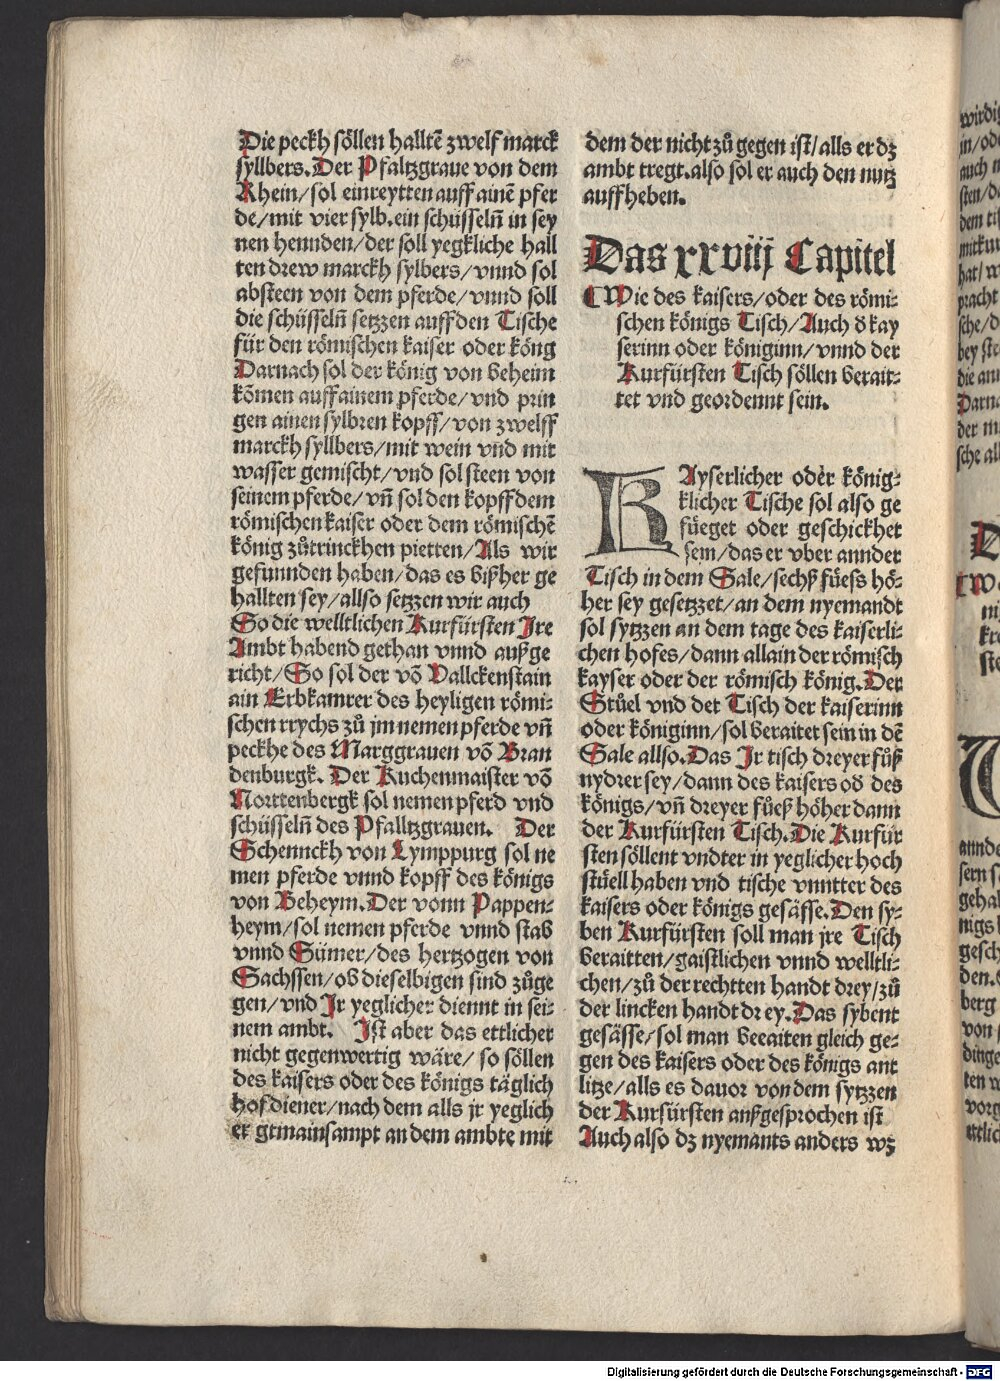 Die peckh söllen halltē zwelf marck
syllbers. Der Pfaltzgraue von dem
Rhein/sol einreytten auff ainē pfer
de/mit vier sylb.ein schüsselñ in sey
nen hennden/der soll yegkliche hall
ten drew marckh sylbers/vnnd sol
absteen von dem pferde/vnnd soll
die schüsselñ setzzen auff den Tische
für den römischen kaiser oder köng
Darnach sol der könig von beheim
kōmen auff ainem pferde/vnd prin
gen ainen sylbren kopff/von zwelff
marckh syllbers/mit wein vnd mit
wasser gemischt/vnd sol steen von
seinem pferde/vñ sol den kopff dem
römischen kaiser oder dem römischē
könig zůtrinckhen pietten/Als wir
gefunnden haben/das es bißher ge
hallten sey/allso setzzen wir auch
So die welltlichen Kurfürsten Ire
Ambt habend gethan vnnd außge
richt/So sol der vō Vallckenstain
ain Erbkamrer des heyligen römi⸗
schen rrychs zů jm nemen pferde vñ
peckhe des Marggrauen vō Bran
denburgk. Der Kuchenmaister vō
Norttenbergk sol nemen pferd vnd
schüsselñ des Pfalltzgrauen. Der
Schennckh von Lymppurg sol ne
men pferde vnnd kopff des königs
von Beheym. Der vonn Pappen⸗
heym/sol nemen pferde vnnd stab
vnnd Sümer/des hertzogen von
Sachssen/ob dieselbigen sind zůge
gen/vnd Ir yeglicher diennt in sei⸗
nem ambt. Ist aber das ettlicher
nicht gegenwertig wäre/so söllen
des kaisers oder des königs täglich
hofdiener/nach dem alls jr yeglich
er gemainsampt an dem ambte mit
dem der nicht zů gegen ist/alls er dz
ambt tregt.also sol er auch den nutz
auffheben.
Das xxviij Capitel
Wie des kaisers/oder des römi⸗
schen königs Tisch/Auch d kay
serinn oder königinn/vnnd der
Kurfürsten Tisch söllen berait⸗
tet vnd geordennt sein.
KAyserlicher oder könig⸗
klicher Tische sol also ge
füeget oder geschickhet
sem/das er vber annder
Tisch in dem Sale/sechß füess hö⸗
her sey gesetzzet/an dem nyemandt
sol sytzzen an dem tage des kaiserli⸗
chen hofes/dann allain der römisch
kayser oder der römisch könig.Der
Stůel vnd det Tisch der kaiserinn
oder königinn/sol beraitet sein in dē
Sale allso.Das Ir tisch dreyer fůß
nydrer sey/dann des kaisers od des
königs/vñ dreyer fůeß höher dann
der Kurfürsten Tisch.Die Kurfür
sten söllent vndter in yeglicher hoch
stüell haben vnd tische vnntter des
kaisers oder königs gesässe.Den sy⸗
ben Kurfürsten soll man jre Tisch
beraitten/gaistlichen vnnd welltli⸗
chen/zů der rechtten handt drey/zů
der lincken handt drey.Das sybent
gesässe/sol man beeaiten gleich ge⸗
gen des kaisers oder des königs ant
litze/alls es dauor von dem sytzzen
der Kurfürsten außgesprochen ist
Auch also dz nyemants anders wz
Digitalisierung gefördert durch die Deutsche Forschungsgemeinschaft - DFG